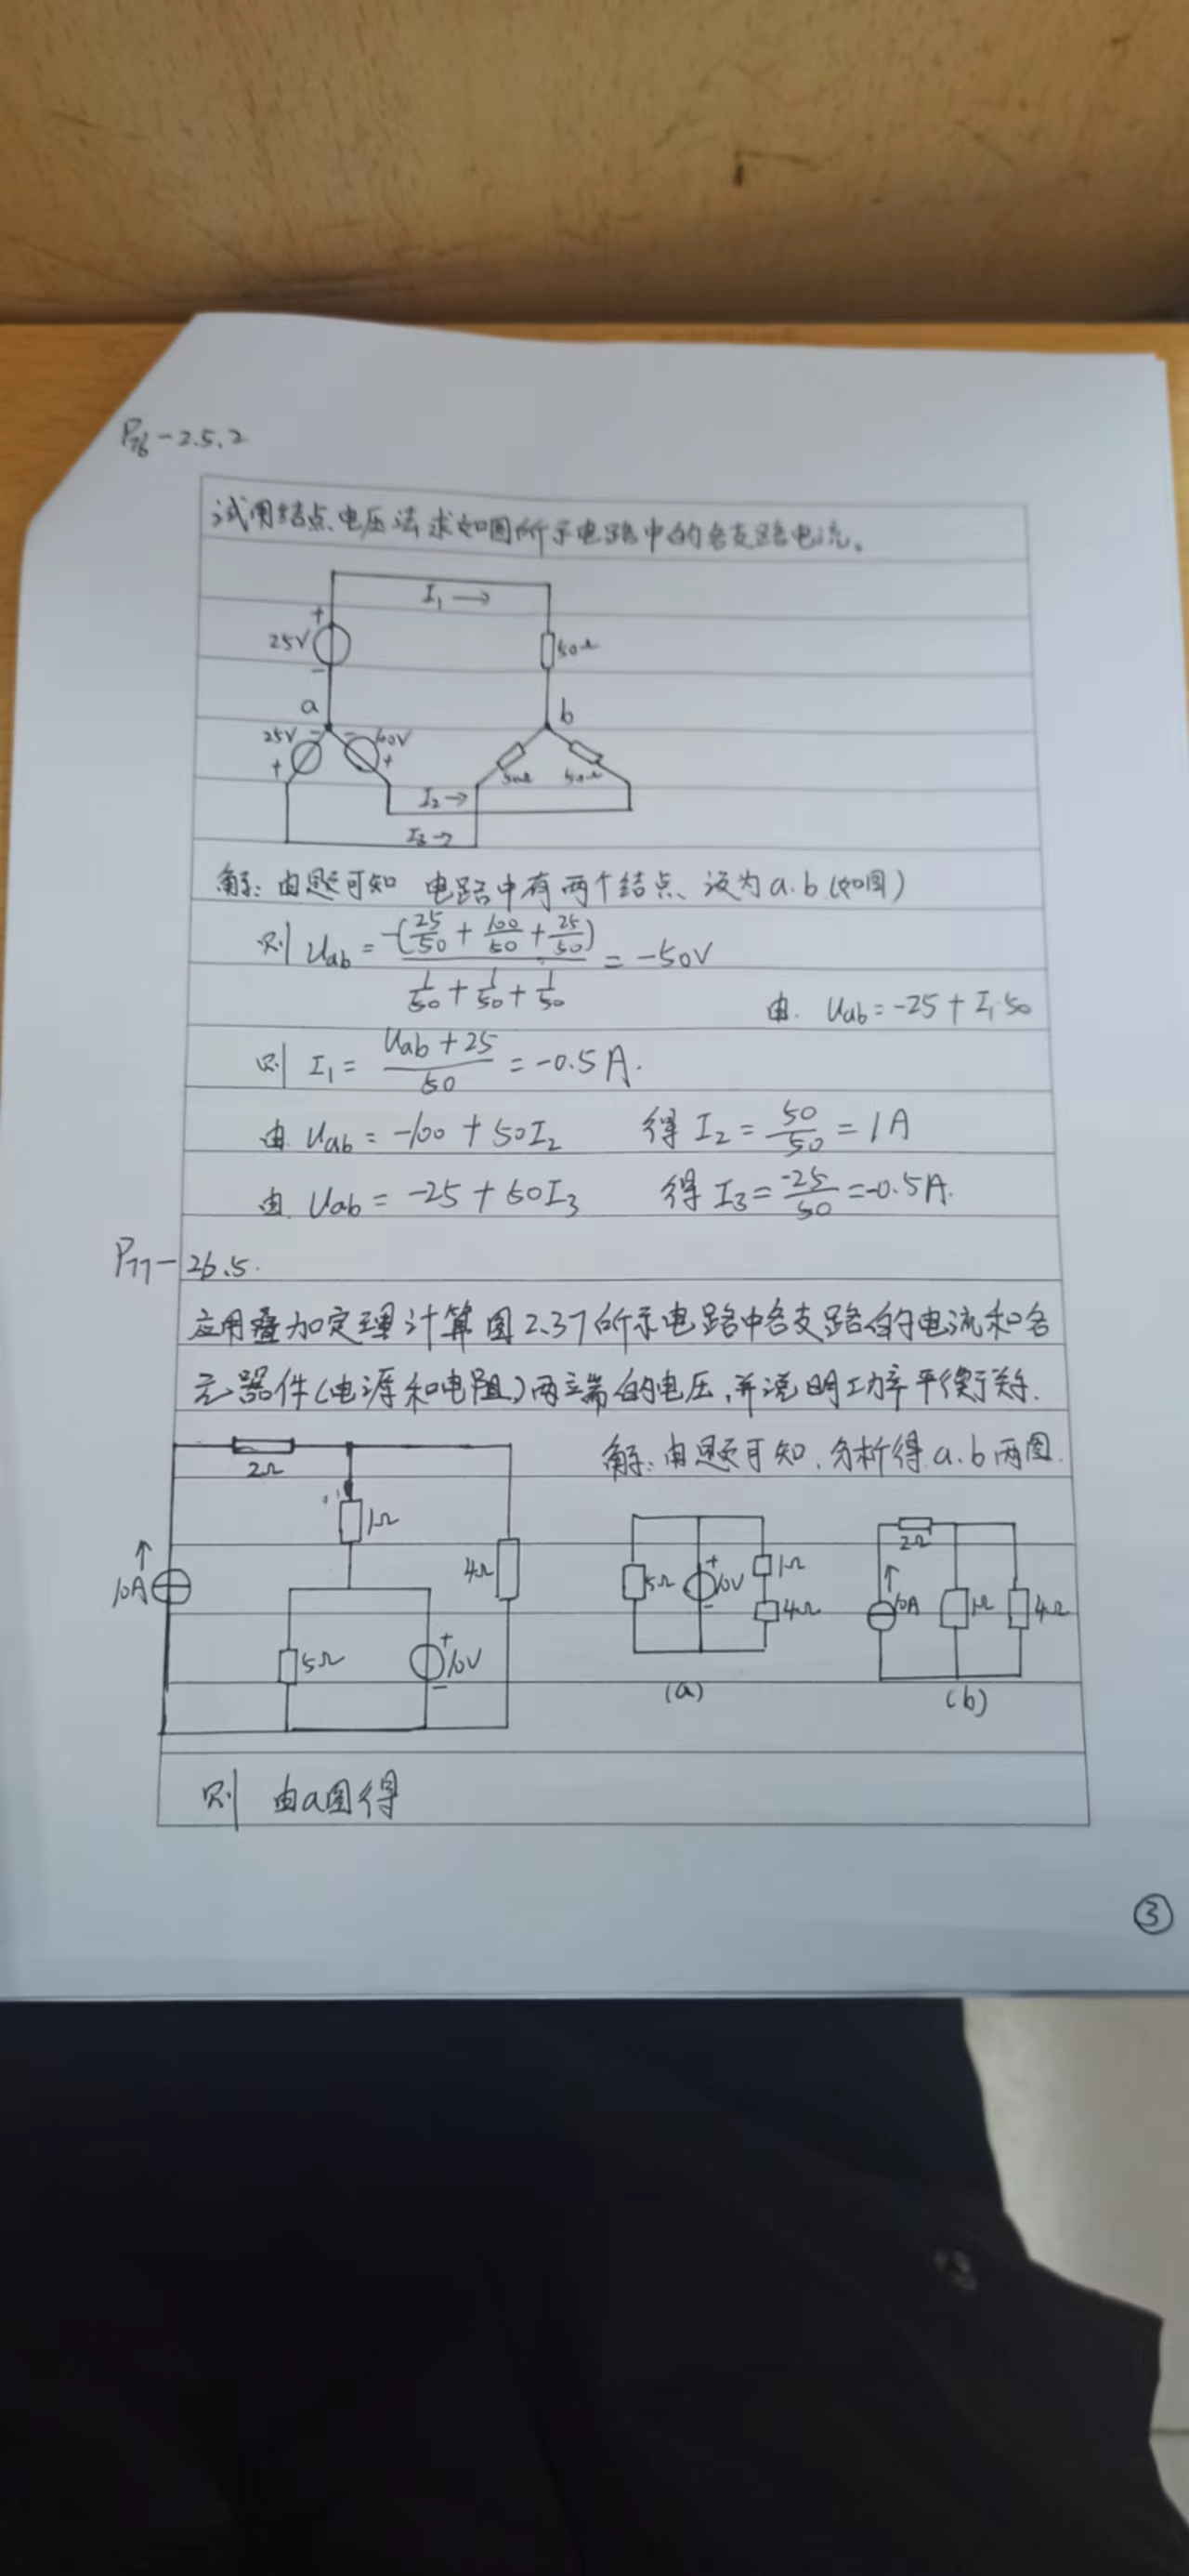 P76-2.5.2
试用结点电压法求如图所示电路中的各支路电流。
I₁ →
+
25V
-
50Ω
a
b
25V - - 100V
+ +
50Ω 50Ω
I₂ →
I₃ →
解: 由题可知 电路中有两个结点、设为a.b(如图)
则 Uab = -(25/50 + 100/50 + 25/50) / (1/50 + 1/50 + 1/50) = -50V
由. Uab = -25 + I₁50
则 I₁ = (Uab + 25)/50 = -0.5A.
由. Uab = -100 + 50I₂ 得 I₂ = 50/50 = 1A
由. Uab = -25 + 50I₃ 得 I₃ = -25/50 = -0.5A.
P77-26.5.
应用叠加定理计算图2.37所示电路中各支路的电流和各
元器件(电源和电阻)两端的电压,并说明功率平衡关系.
解: 由题可知, 分析得.a.b两图.
2Ω
1Ω
4Ω
↑
10A
5Ω
+
10V
-
5Ω
+
10V
-
1Ω
4Ω
(a)
2Ω
↑
10A
1Ω
4Ω
(b)
则 由a图得
③